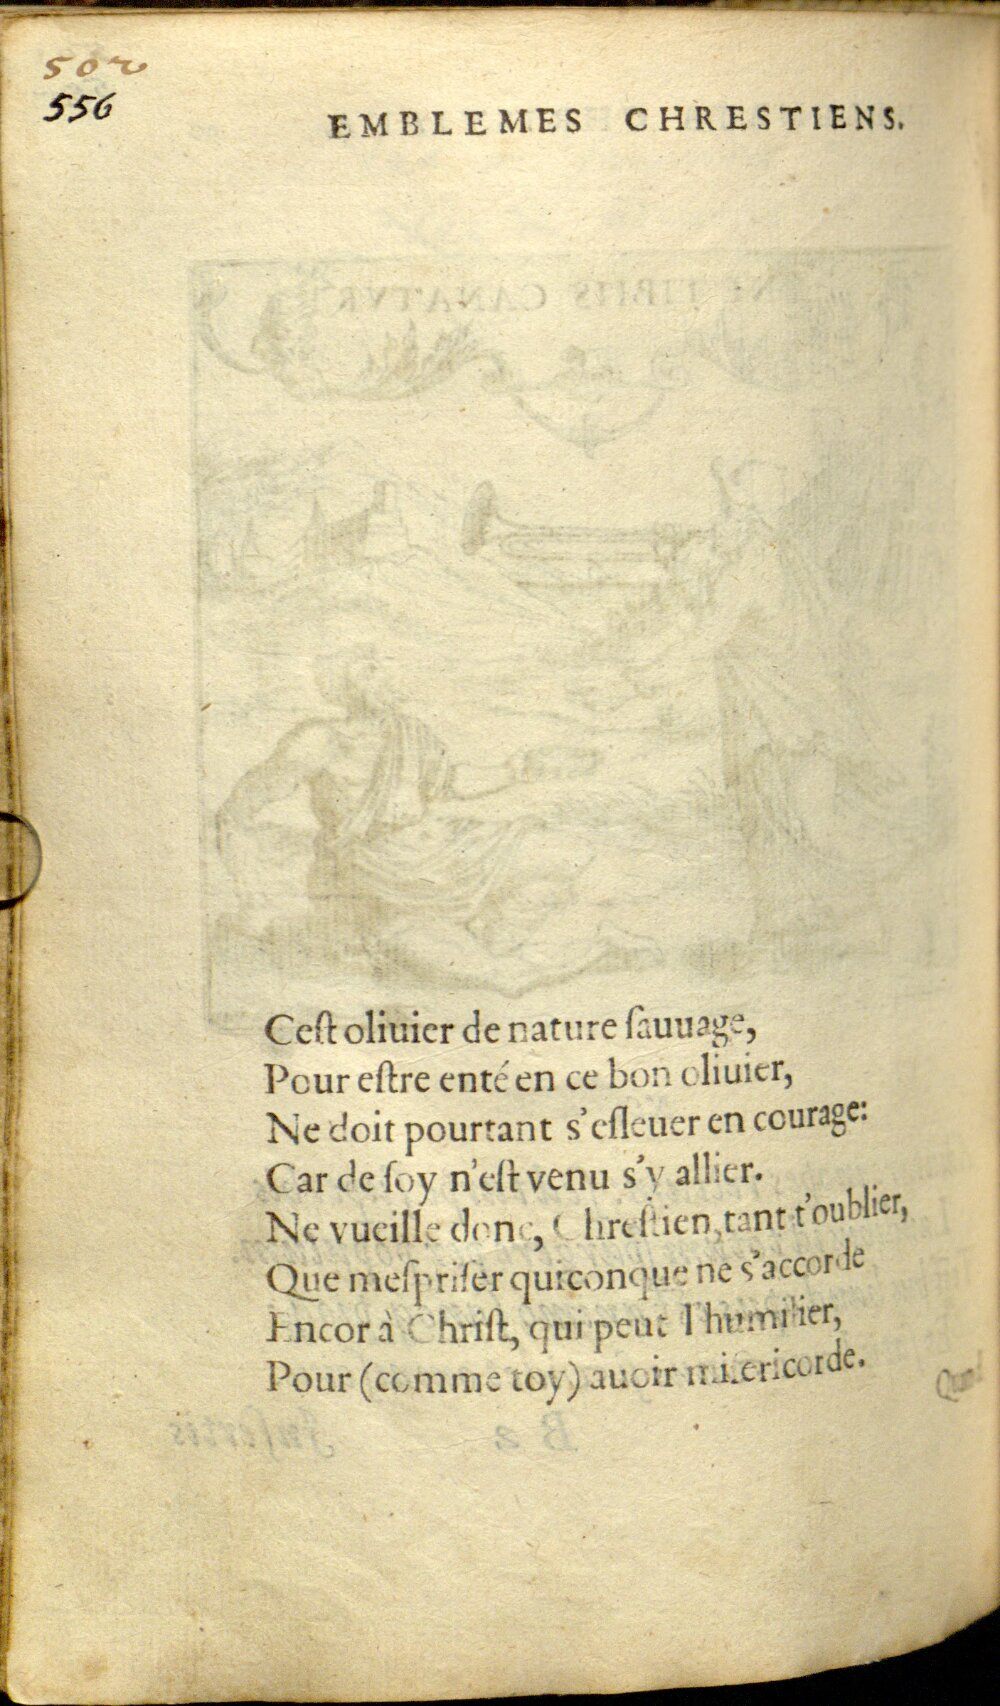 502
556
EMBLEMES CHRESTIENS.
Ceſt oliuier de nature ſauuage,
Pour eſtre enté en ce bon oliuier,
Ne doit pourtant s'eſleuer en courage:
Car de ſoy n'eſt venu s'y allier.
Ne vueille donc, Chreſtien, tant t'oublier,
Que meſpriſer quiconque ne s'accorde
Encor à Chriſt, qui peut l'humilier,
Pour (comme toy) auoir miſericorde.
B 2